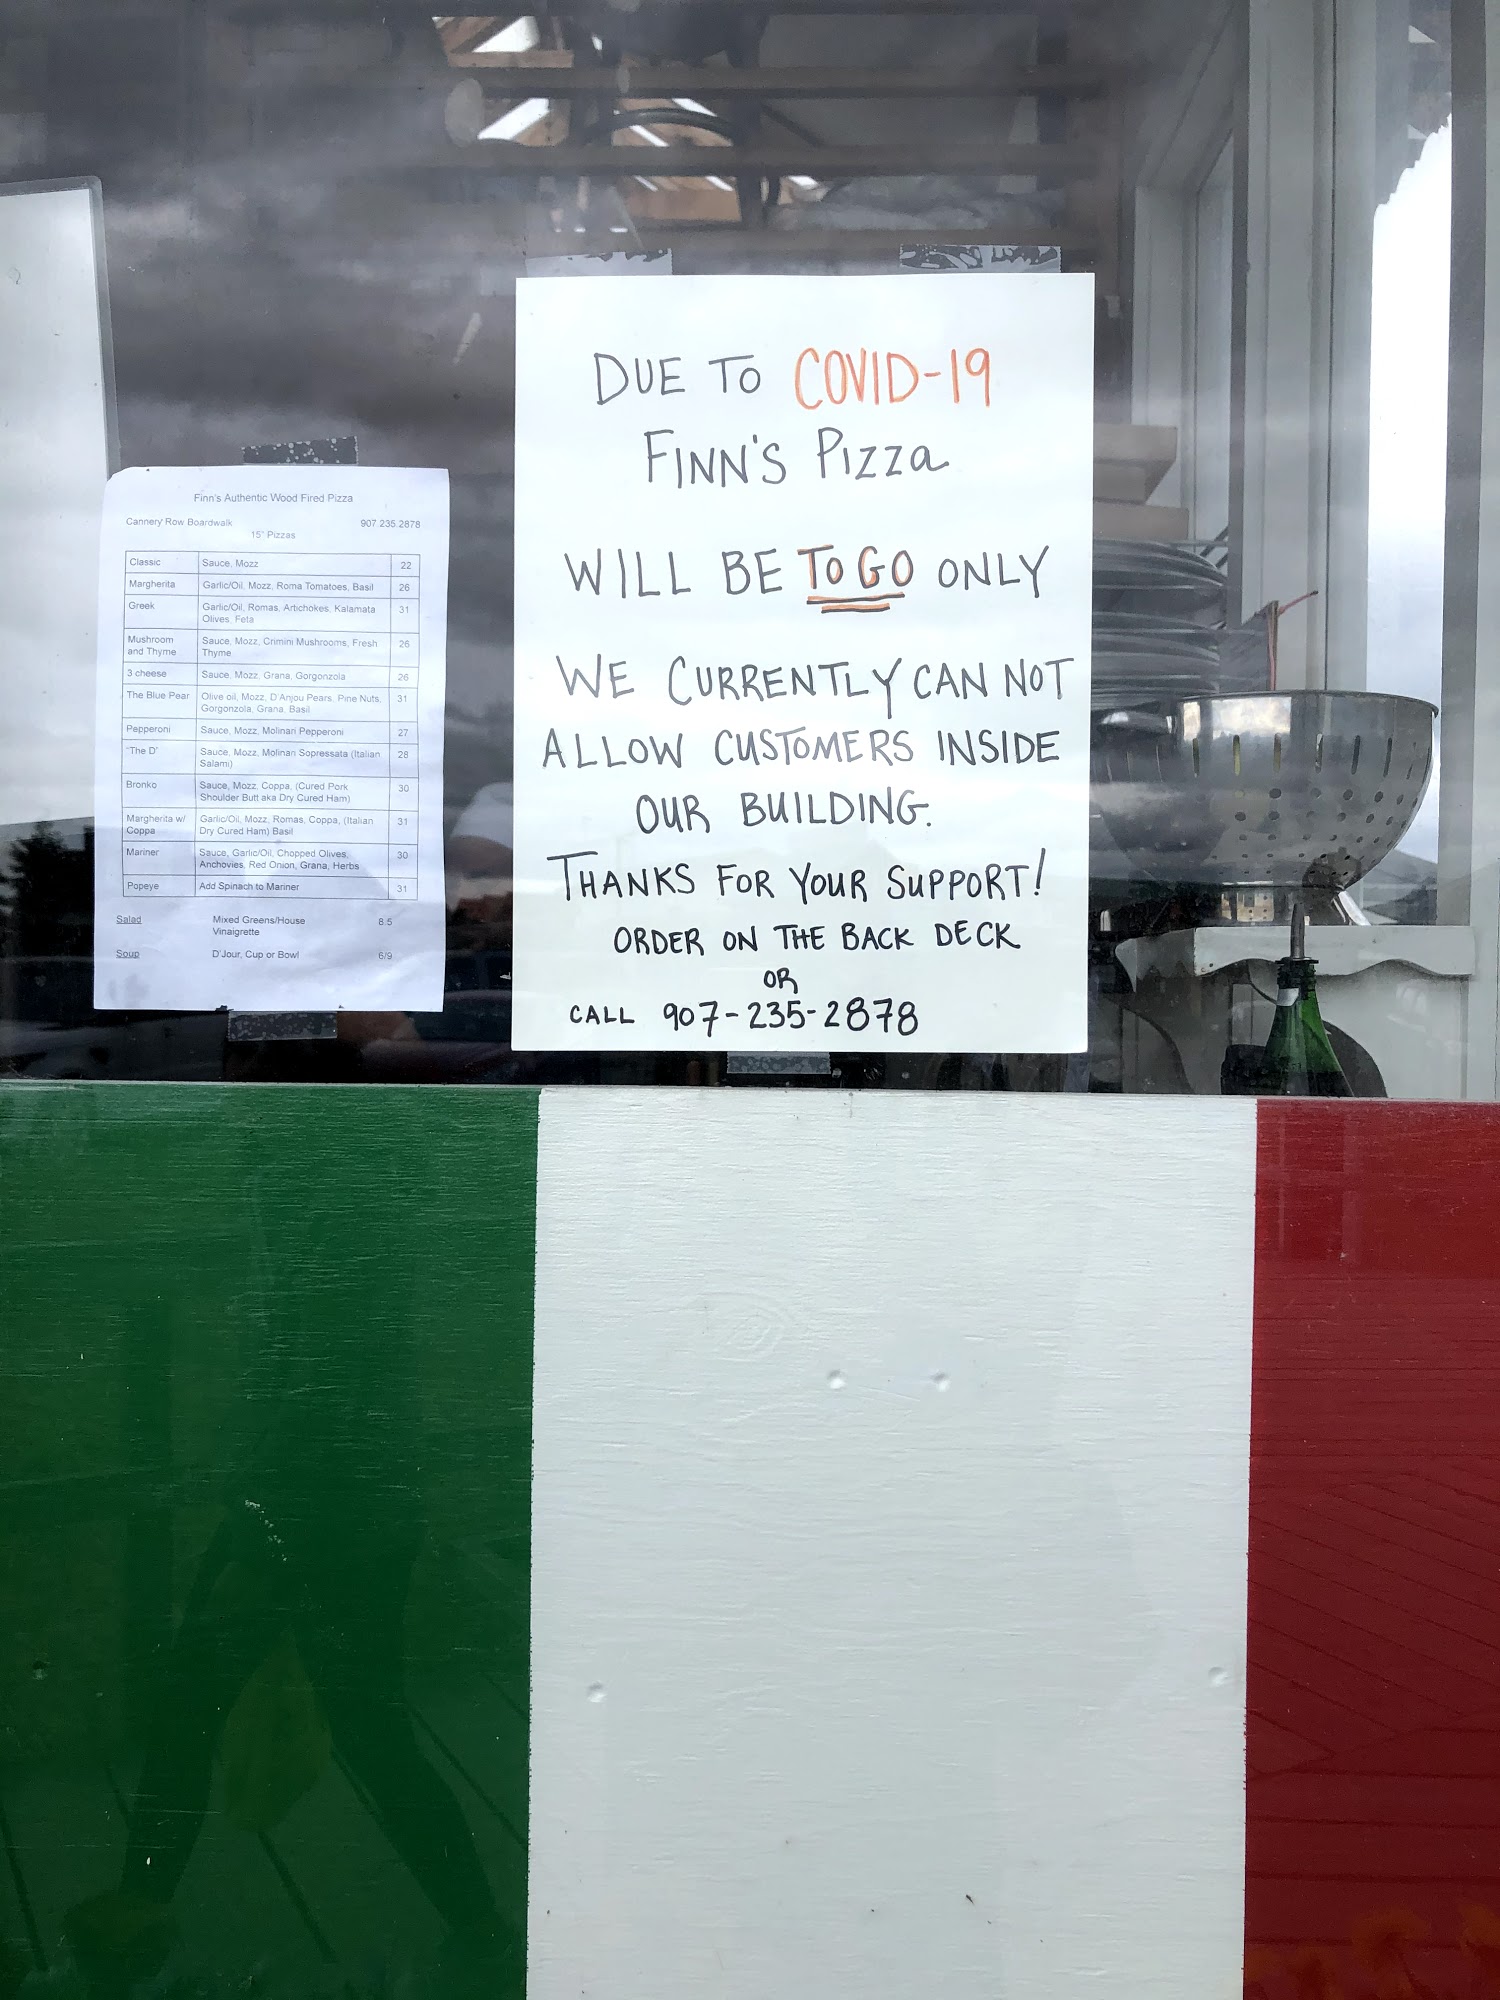 Finn's Authentic Wood Fired Pizza
Cannery Row Boardwalk 907.235.2878
15" Pizzas
Classic Sauce, Mozz 22
Margherita Garlic/Oil, Mozz, Roma Tomatoes, Basil 26
Greek Garlic/Oil, Romas, Artichokes, Kalamata 31
Olives, Feta
Mushroom Sauce, Mozz, Crimini Mushrooms, Fresh 26
and Thyme Thyme
3 cheese Sauce, Mozz, Grana, Gorgonzola 26
The Blue Pear Olive oil, Mozz, D'Anjou Pears, Pine Nuts, 31
Gorgonzola, Grana, Basil
Pepperoni Sauce, Mozz, Molinari Pepperoni 27
"The D" Sauce, Mozz, Molinari Sopressata (Italian 28
Salami)
Bronko Sauce, Mozz, Coppa, (Cured Pork 30
Shoulder Butt aka Dry Cured Ham)
Margherita w/ Garlic/Oil, Mozz, Romas, Coppa, (Italian 31
Coppa Dry Cured Ham) Basil
Mariner Sauce, Garlic/Oil, Chopped Olives, 30
Anchovies, Red Onion, Grana, Herbs
Popeye Add Spinach to Mariner 31
Salad Mixed Greens/House 8.5
Vinaigrette
Soup D'Jour, Cup or Bowl 6/9
DUE TO COVID-19
FINN'S PIZZA
WILL BE TO GO ONLY
WE CURRENTLY CAN NOT
ALLOW CUSTOMERS INSIDE
OUR BUILDING.
THANKS FOR YOUR SUPPORT!
ORDER ON THE BACK DECK
OR
CALL 907-235-2878